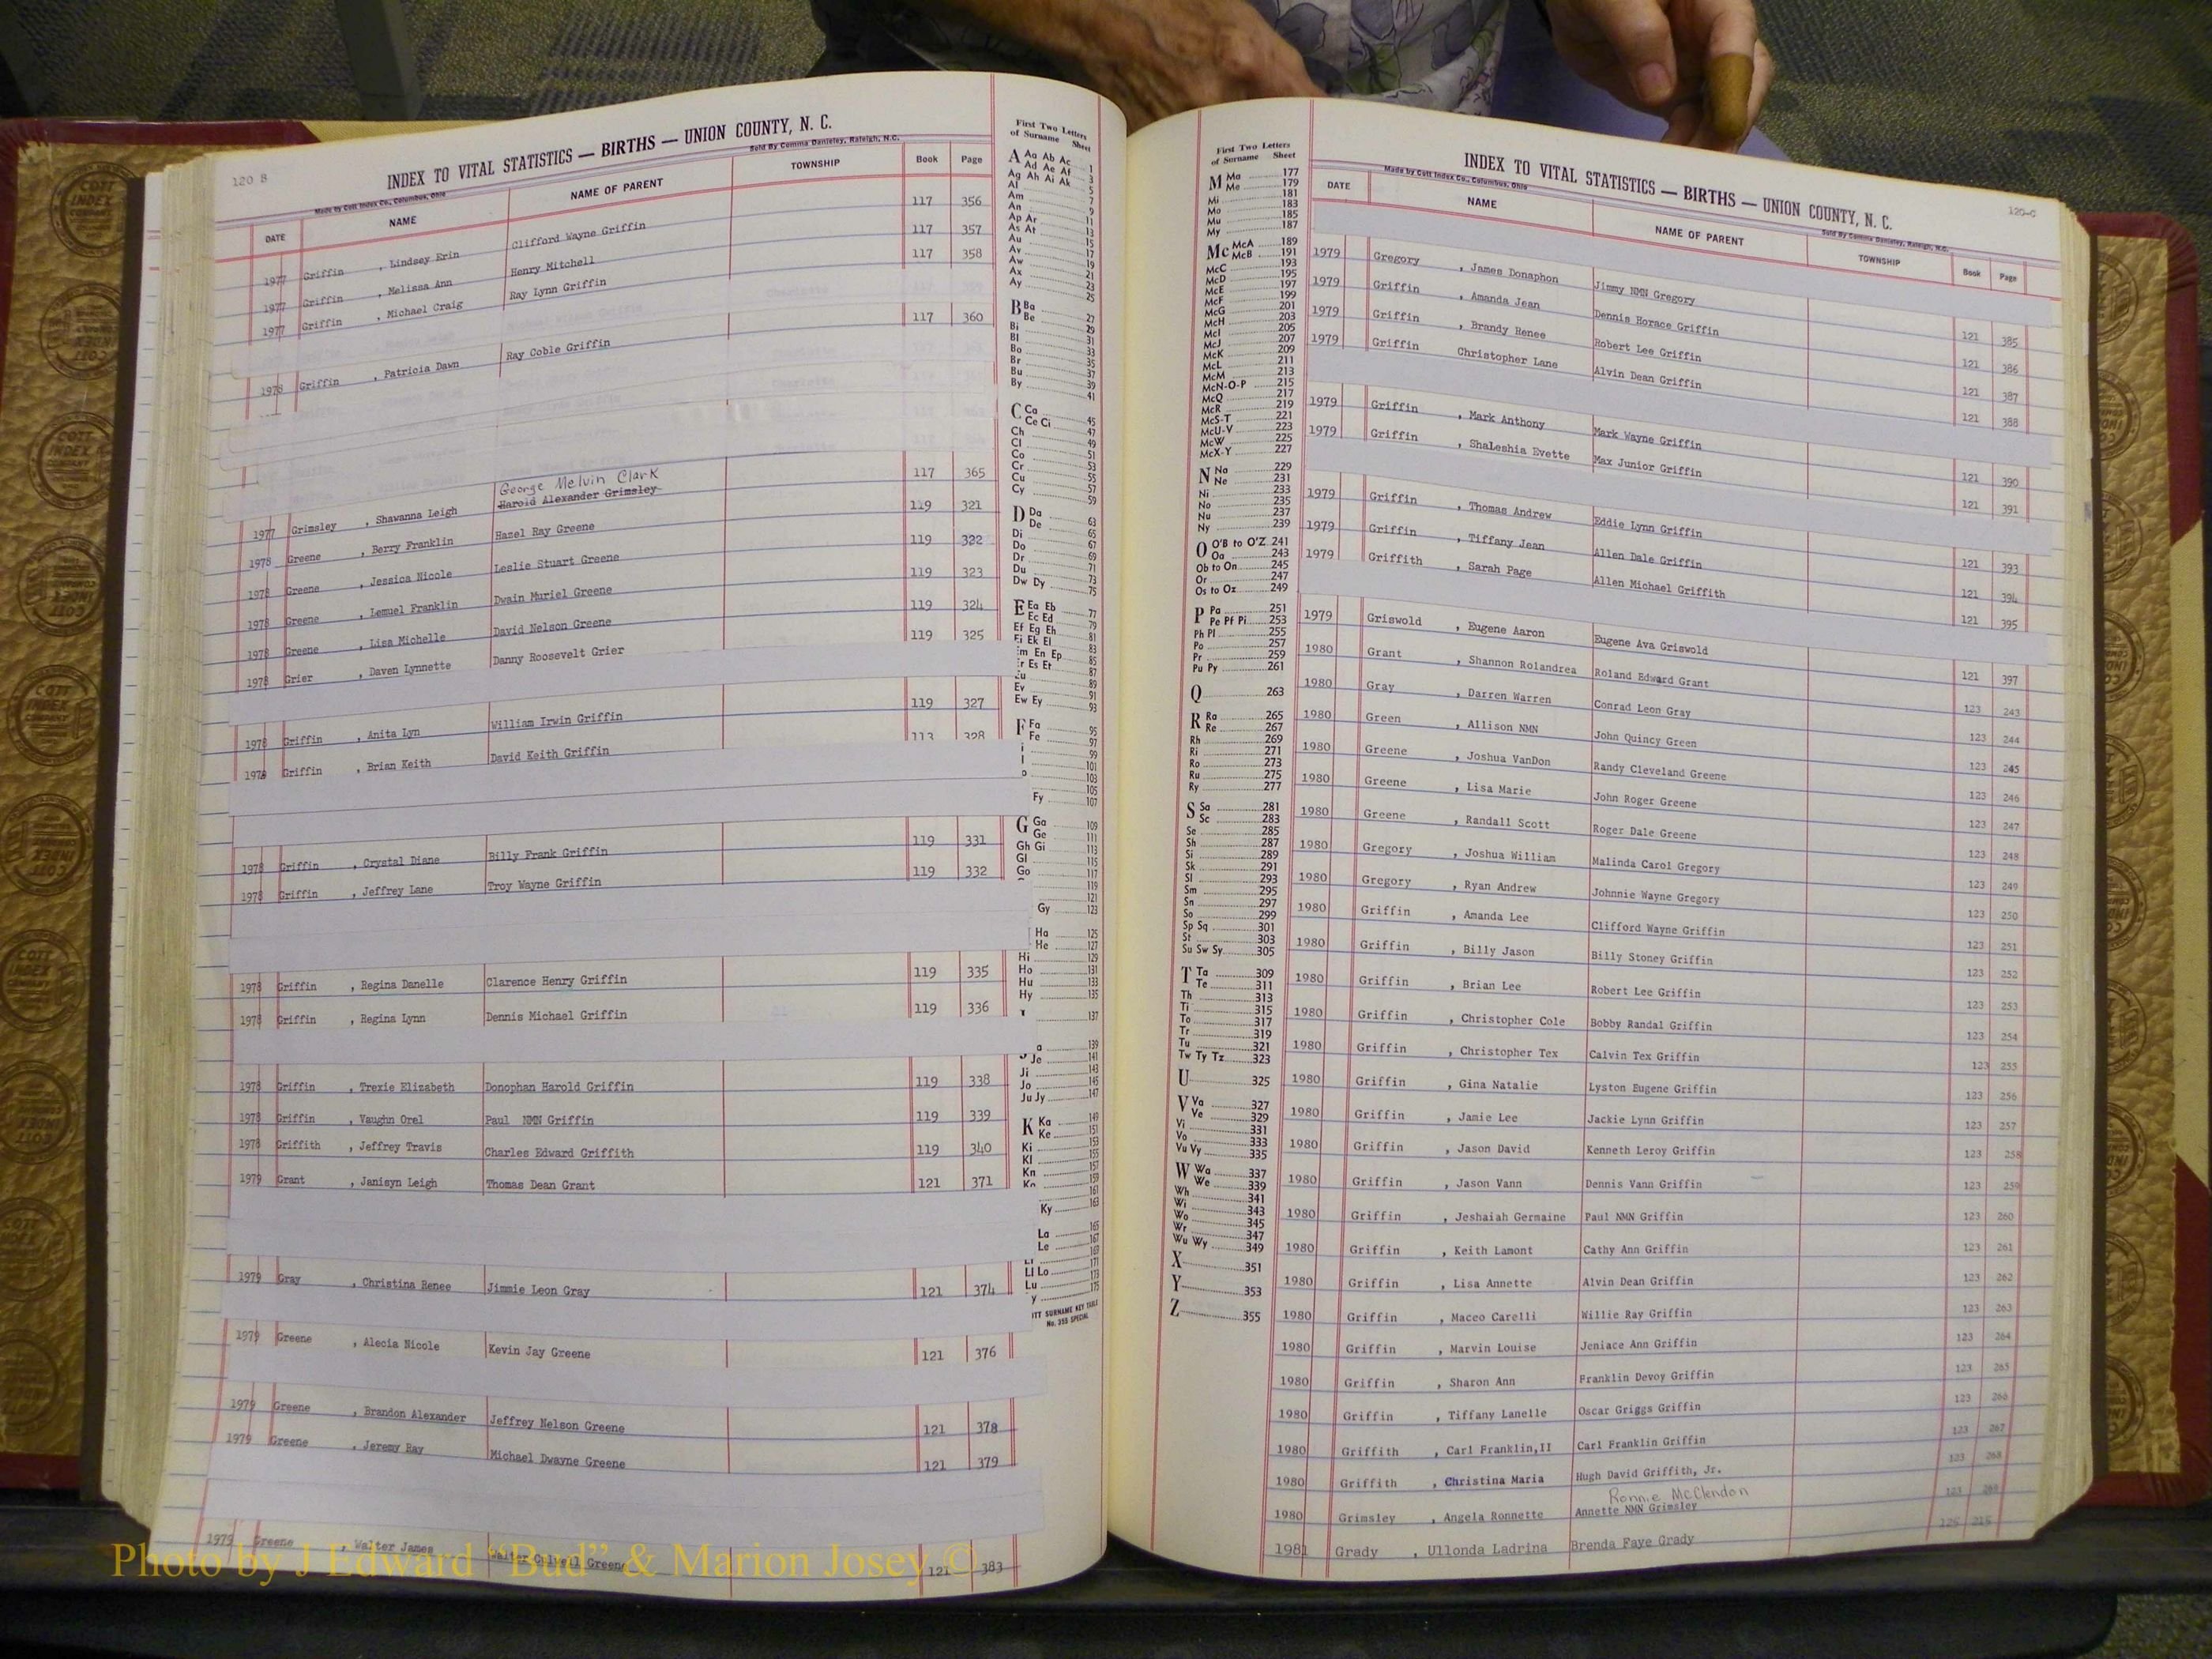 120 B
INDEX TO VITAL STATISTICS — BIRTHS — UNION COUNTY, N. C.
Made by Cott Index Co., Columbus, Ohio
Sold By Comma Danieley, Raleigh, N.C.
DATE NAME NAME OF PARENT TOWNSHIP Book Page
1977 Griffin , Lindsey Erin Clifford Wayne Griffin 117 356
1977 Griffin , Melissa Ann Henry Mitchell 117 357
1977 Griffin , Michael Craig Ray Lynn Griffin 117 358
1978 Griffin , Patricia Dawn Ray Coble Griffin 117 360
George Melvin Clark
1977 Grimsley , Shawanna Leigh Harold Alexander Grimsley 117 365
1978 Greene , Berry Franklin Hazel Ray Greene 119 321
1978 Greene , Jessica Nicole Leslie Stuart Greene 119 322
1978 Greene , Lemuel Franklin Dwain Muriel Greene 119 323
1978 Greene , Lisa Michelle David Nelson Greene 119 324
1978 Grier , Daven Lynnette Danny Roosevelt Grier 119 325
1978 Griffin , Anita Lyn William Irwin Griffin 119 327
1978 Griffin , Brian Keith David Keith Griffin 328
1978 Griffin , Crystal Diane Billy Frank Griffin 119 331
1978 Griffin , Jeffrey Lane Troy Wayne Griffin 119 332
1978 Griffin , Regina Danelle Clarence Henry Griffin 119 335
1978 Griffin , Regina Lynn Dennis Michael Griffin 119 336
1978 Griffin , Trexie Elizabeth Donophan Harold Griffin 119 338
1978 Griffin , Vaughn Orel Paul NMN Griffin 119 339
1978 Griffith , Jeffrey Travis Charles Edward Griffith 119 340
1979 Grant , Janisyn Leigh Thomas Dean Grant 121 371
1979 Gray , Christina Renee Jimmie Leon Gray 121 374
1979 Greene , Alecia Nicole Kevin Jay Greene 121 376
1979 Greene , Brandon Alexander Jeffrey Nelson Greene 121 378
1979 Greene , Jeremy Ray Michael Dwayne Greene 121 379
1979 Greene , Walter James Walter Colwell Greene 121 383
First Two Letters
of Surname Sheet
A Aa Ab Ac 1
Ad Ae Af 3
Ag Ah Ai Ak 5
Al 7
Am 9
An 11
Ap Ar 13
As At 15
Au 17
Av 19
Aw 21
Ax 23
Ay 25
B Ba 27
Be 29
Bi 31
Bl 33
Bo 35
Br 37
Bu 39
By 41
C Ca 45
Ce Ci 47
Ch 49
Cl 51
Co 53
Cr 55
Cu 57
Cy 59
D Da 63
De 65
Di 67
Do 69
Dr 71
Du 73
Dw Dy 75
E Ea Eb 77
Ec Ed 79
Ef Eg Eh 81
Ej Ek El 83
Em En Ep 85
Er Es Et 87
Eu 89
Ev 91
Ew Ey 93
F Fa 95
Fe 97
99
101
103
105
Fy 107
G Ga 109
Ge 111
Gh Gi 113
Gl 115
Go 117
119
121
Gy 123
Ha 125
He 127
Hi 129
Ho 131
Hu 133
Hy 135
137
139
Je 141
Ji 143
Jo 145
Ju Jy 147
K Ka 149
Ke 151
Ki 153
Kl 155
Kn 157
159
161
Ky 163
La 165
Le 167
169
171
Ll Lo 173
Lu 175
SURNAME KEY TABLE
No. 355 SPECIAL
First Two Letters
of Surname Sheet
M Ma 177
Me 179
Mi 181
Mo 183
Mu 185
My 187
Mc McA 189
McB 191
McC 193
McD 195
McE 197
McF 199
McG 201
McH 203
McI 205
McJ 207
McK 209
McL 211
McM 213
McN-O-P 215
McQ 217
McR 219
McS-T 221
McU-V 223
McW 225
McX-Y 227
N Na 229
Ne 231
Ni 233
No 235
Nu 237
Ny 239
O O'B to O'Z 241
Oa 243
Ob to On 245
Or 247
Os to Oz 249
P Pa 251
Pe Pf Pi 253
Ph Pl 255
Po 257
Pr 259
Pu Py 261
Q 263
R Ra 265
Re 267
Rh 269
Ri 271
Ro 273
Ru 275
Ry 277
S Sa 281
Sc 283
Se 285
Sh 287
Si 289
Sk 291
Sl 293
Sm 295
Sn 297
So 299
Sp Sq 301
St 303
Su Sw Sy 305
T Ta 309
Te 311
Th 313
Ti 315
To 317
Tr 319
Tu 321
Tw Ty Tz 323
U 325
V Va 327
Ve 329
Vi 331
Vo 333
Vu Vy 335
W Wa 337
We 339
Wh 341
Wi 343
Wo 345
Wr 347
Wu Wy 349
X 351
Y 353
Z 355
120-C
INDEX TO VITAL STATISTICS — BIRTHS — UNION COUNTY, N. C.
Made by Cott Index Co., Columbus, Ohio
Sold By Comma Danieley, Raleigh, N.C.
DATE NAME NAME OF PARENT TOWNSHIP Book Page
1979 Gregory , James Donaphon Jimmy NMN Gregory 121 385
1979 Griffin , Amanda Jean Dennis Horace Griffin 121 386
1979 Griffin , Brandy Renee Robert Lee Griffin 121 387
1979 Griffin Christopher Lane Alvin Dean Griffin 121 388
1979 Griffin , Mark Anthony Mark Wayne Griffin 121 390
1979 Griffin , ShaLeshia Evette Max Junior Griffin 121 391
1979 Griffin , Thomas Andrew Eddie Lynn Griffin 121 393
1979 Griffin , Tiffany Jean Allen Dale Griffin 121 394
1979 Griffith , Sarah Page Allen Michael Griffith 121 395
1979 Griswold , Eugene Aaron Eugene Ava Griswold 121 397
1980 Grant , Shannon Rolandrea Roland Edward Grant 123 243
1980 Gray , Darren Warren Conrad Leon Gray 123 244
1980 Green , Allison NMN John Quincy Green 123 245
1980 Greene , Joshua VanDon Randy Cleveland Greene 123 246
1980 Greene , Lisa Marie John Roger Greene 123 247
1980 Greene , Randall Scott Roger Dale Greene 123 248
1980 Gregory , Joshua William Malinda Carol Gregory 123 249
1980 Gregory , Ryan Andrew Johnnie Wayne Gregory 123 250
1980 Griffin , Amanda Lee Clifford Wayne Griffin 123 251
1980 Griffin , Billy Jason Billy Stoney Griffin 123 252
1980 Griffin , Brian Lee Robert Lee Griffin 123 253
1980 Griffin , Christopher Cole Bobby Randal Griffin 123 254
1980 Griffin , Christopher Tex Calvin Tex Griffin 123 255
1980 Griffin , Gina Natalie Lyston Eugene Griffin 123 256
1980 Griffin , Jamie Lee Jackie Lynn Griffin 123 257
1980 Griffin , Jason David Kenneth Leroy Griffin 123 258
1980 Griffin , Jason Vann Dennis Vann Griffin 123 259
1980 Griffin , Jeshaiah Germaine Paul NMN Griffin 123 260
1980 Griffin , Keith Lamont Cathy Ann Griffin 123 261
1980 Griffin , Lisa Annette Alvin Dean Griffin 123 262
1980 Griffin , Maceo Carelli Willie Ray Griffin 123 263
1980 Griffin , Marvin Louise Jeniace Ann Griffin 123 264
1980 Griffin , Sharon Ann Franklin Devoy Griffin 123 265
1980 Griffin , Tiffany Lanelle Oscar Griggs Griffin 123 266
1980 Griffith , Carl Franklin,II Carl Franklin Griffin 123 267
1980 Griffith , Christina Maria Hugh David Griffith, Jr. 123 268
Ronnie McClendon
1980 Grimsley , Angela Ronnette Annette NMN Grimsley 123 269
1981 Grady , Ullonda Ladrina Brenda Faye Grady 125 215
Photo by J Edward "Bud" & Marion Josey ©